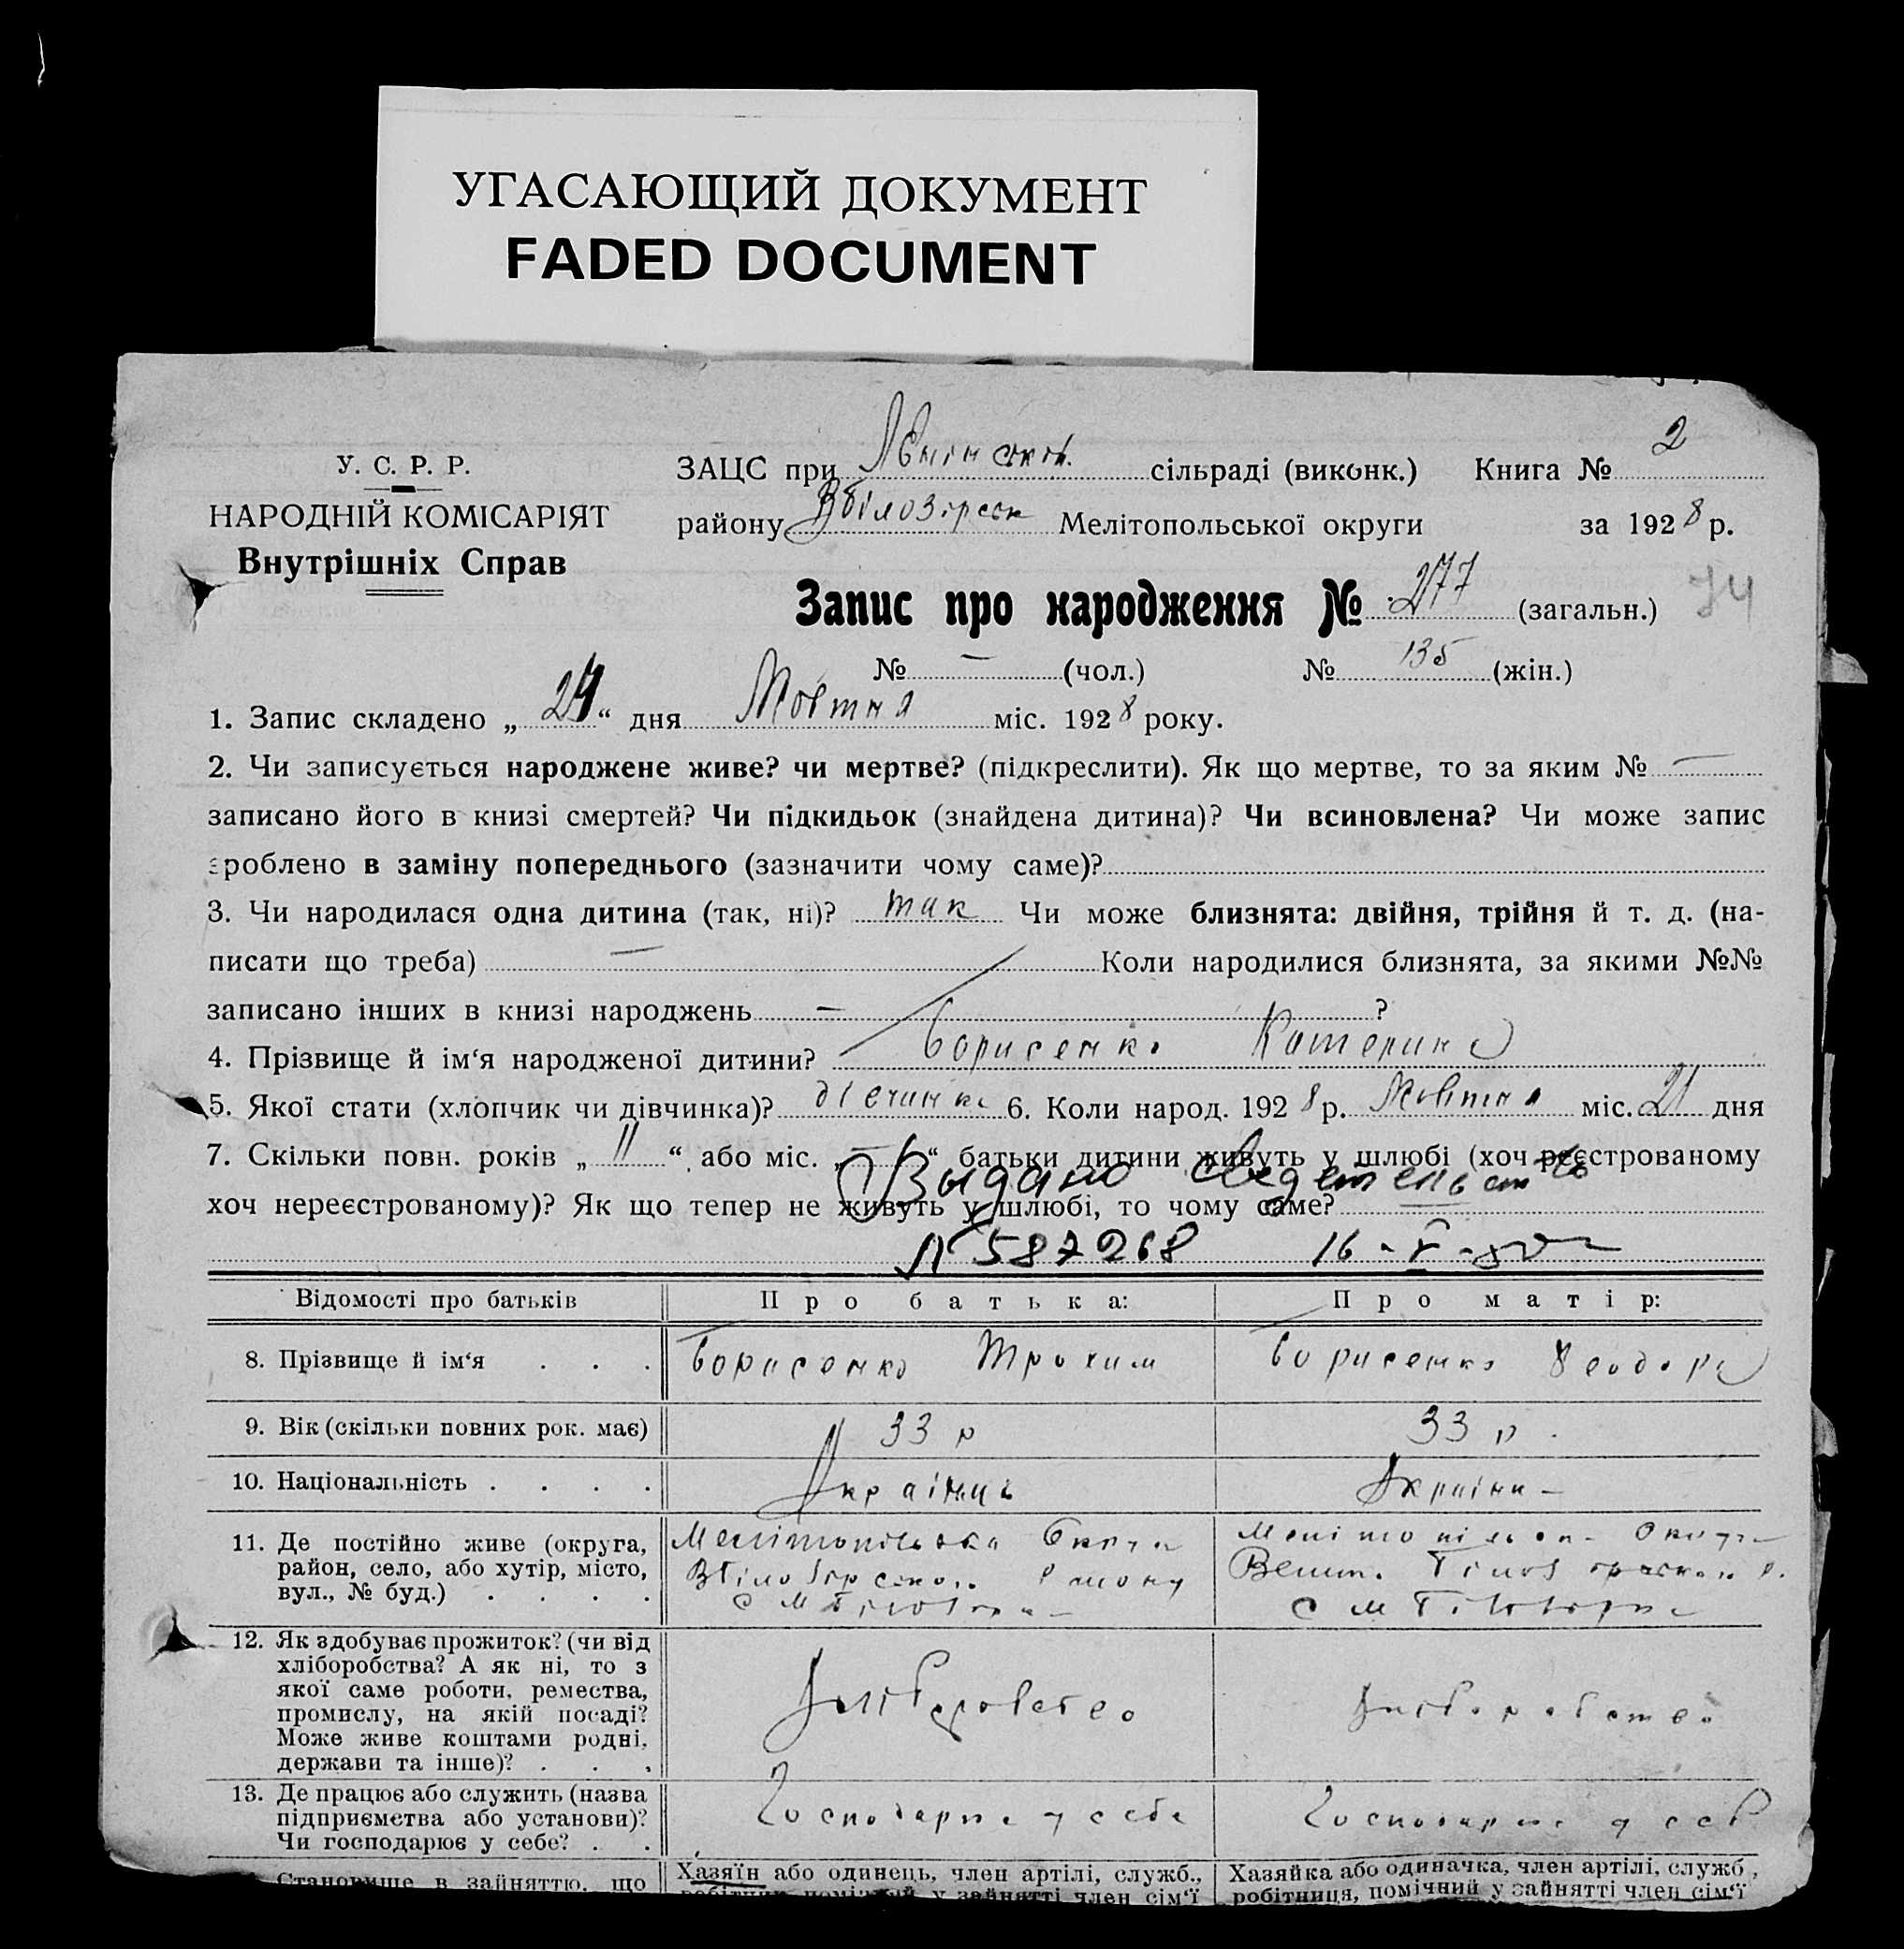 УГАСАЮЩИЙ ДОКУМЕНТ
FADED DOCUMENT
У. С. Р. Р.
НАРОДНІЙ КОМІСАРІЯТ
Внутрішніх Справ
ЗАЦС при сільраді (виконк.) Книга № 2
району Мелітопольської округи за 1928 р.
Запис про народження № 277 (загальн.) 74
№ — (чол.) № 135 (жін.)
1. Запис складено „ 24 “ дня Жовтня міс. 1928 року.
2. Чи записується народжене живе? чи мертве? (підкреслити). Як що мертве, то за яким № —
записано його в книзі смертей? Чи підкидьок (знайдена дитина)? Чи всиновлена? Чи може запис
зроблено в заміну попереднього (зазначити чому саме)?
3. Чи народилася одна дитина (так, ні)? так Чи може близнята: двійня, трійня й т. д. (на-
писати що треба) — Коли народилися близнята, за якими №№
записано інших в книзі народжень — ?
4. Прізвище й ім‘я народженої дитини? Борисенко Катерина
5. Якої стати (хлопчик чи дівчинка)? дівчинка 6. Коли народ. 1928 р. Жовтня міс. 21 дня
7. Скільки повн. років „ 11 “, або міс. „ — “ батьки дитини живуть у шлюбі (хоч реєстрованому
Выдано свидетельство
хоч нереєстрованому)? Як що тепер не живуть у шлюбі, то чому саме?
№ 587268 16-V-
Відомості про батьків Про батька: Про матір:
8. Прізвище й ім‘я . . . Борисенко Трохим Борисенко Феодора
9. Вік (скільки повних рок. має) 33 р 33 р.
10. Національність . . . . Українць Україн-
11. Де постійно живе (округа,
район, село, або хутір, місто,
вул., № буд.) . . . .
Мелітопільска Округа
с м
Мелітопільск- Округа
с м
12. Як здобуває прожиток? (чи від
хліборобства? А як ні, то з
якої саме роботи, ремества,
промислу, на якій посаді?
Може живе коштами родні,
держави та інше)? . . .
Хліборобство
Хліборобство
13. Де працює або служить (назва
підприємства або установи)?
Чи господарює у себе? . .
Господарює у себе
Господарює у себ
Становище в зайняттю, що
Хазяїн або одинець, член артілі, служб.,
робітник, помічний у зайнятті член сім‘ї
Хазяйка або одиначка, член артілі, служб.,
робітниця, помічний у зайнятті член сім‘ї